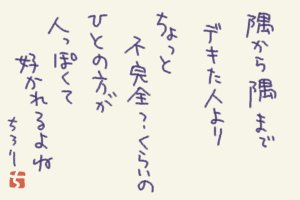 隅から隅まで
デキた人より
ちょっと
不完全？くらいの
ひとの方が
人っぽくて
好かれるよね
ちろり